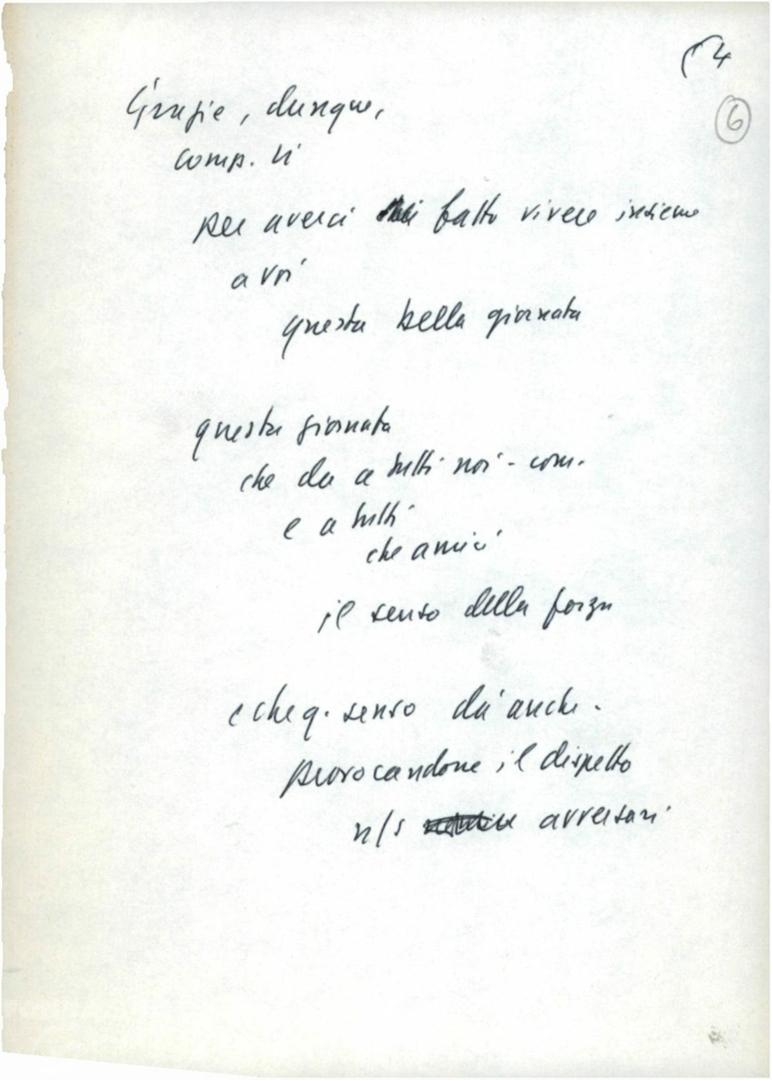 4
6
Grazie, dunque,
comp. ti
per averci fatto vivere insieme
a voi
questa bella giornata
questa giornata
che da a tutti noi - com.
e a tutti
che amici
il senso della forza
e che q. senso dà anche -
provocandone il dispetto
n/s avversari